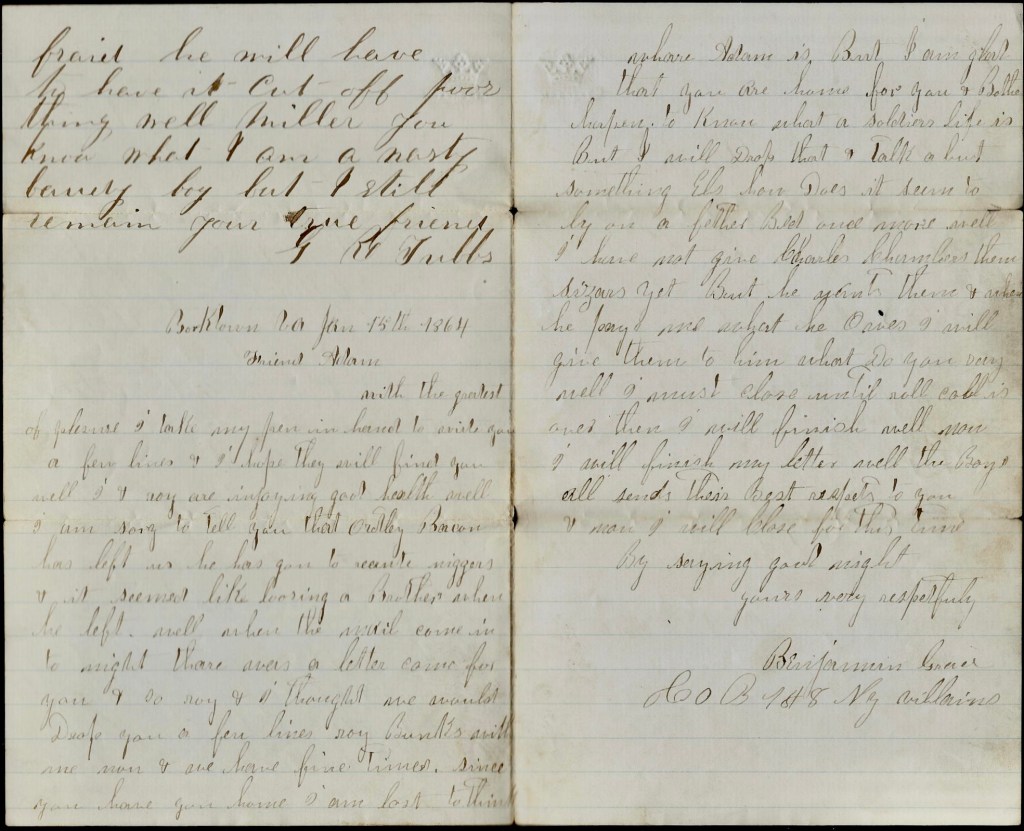 fraid he will have
to have it cut off poor
thing well Miller you
know what I am a nasty
bauty boy but I still
remain your true friend
G H Tubbs
Va Jan 15th 1864
Friend Adam
with the greatest
of plesure I take my pen in hand to write you
a few lines & I hope they will find you
well I & roy are injoying good health well
I am sory to tell you that Bacon
has left us he has gon to recute niggers
& it seemed like loosing a Brother when
he left. well when the mail come in
to night thare wers a letter come for
you & so roy & I thought we would
Drop you a few lines roy Bunks with
me now & we have fine times. since
you have gon home I am lost to think
whare Adam is But I am glad
that you are home for you & Bothe
to Know what a soldiers life is
But I will Drop that & talk about
something Els how Does it seem to
ly on a fether Bed once more well
I have not give Charles Chambers them
sizzars yet But he wants them & when
he pays me what he Owes I will
give them to him what Do you say
well I must close until roll call is
over then I will finish well now
I will finish my letter well the Boys
all sends their Best respects to you
& now I will Close for this time
By saying good night
yours very respetfuly
Benjamin
CO B 148 Ny